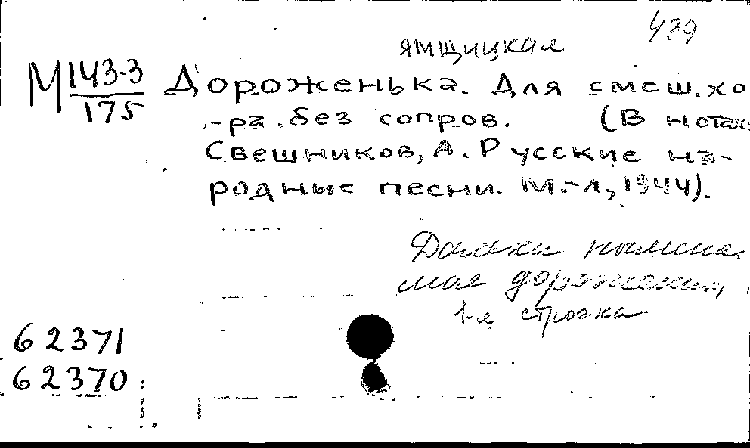 439
ямщицкая
М 143-3/175 Дороженька. Для смеш.хо
-ра.без сопров. (В нотах:
Свешников, А. Русские на-
родные песни. М.-Л, 1944).
дороженька,
1-я строка
62371
62370